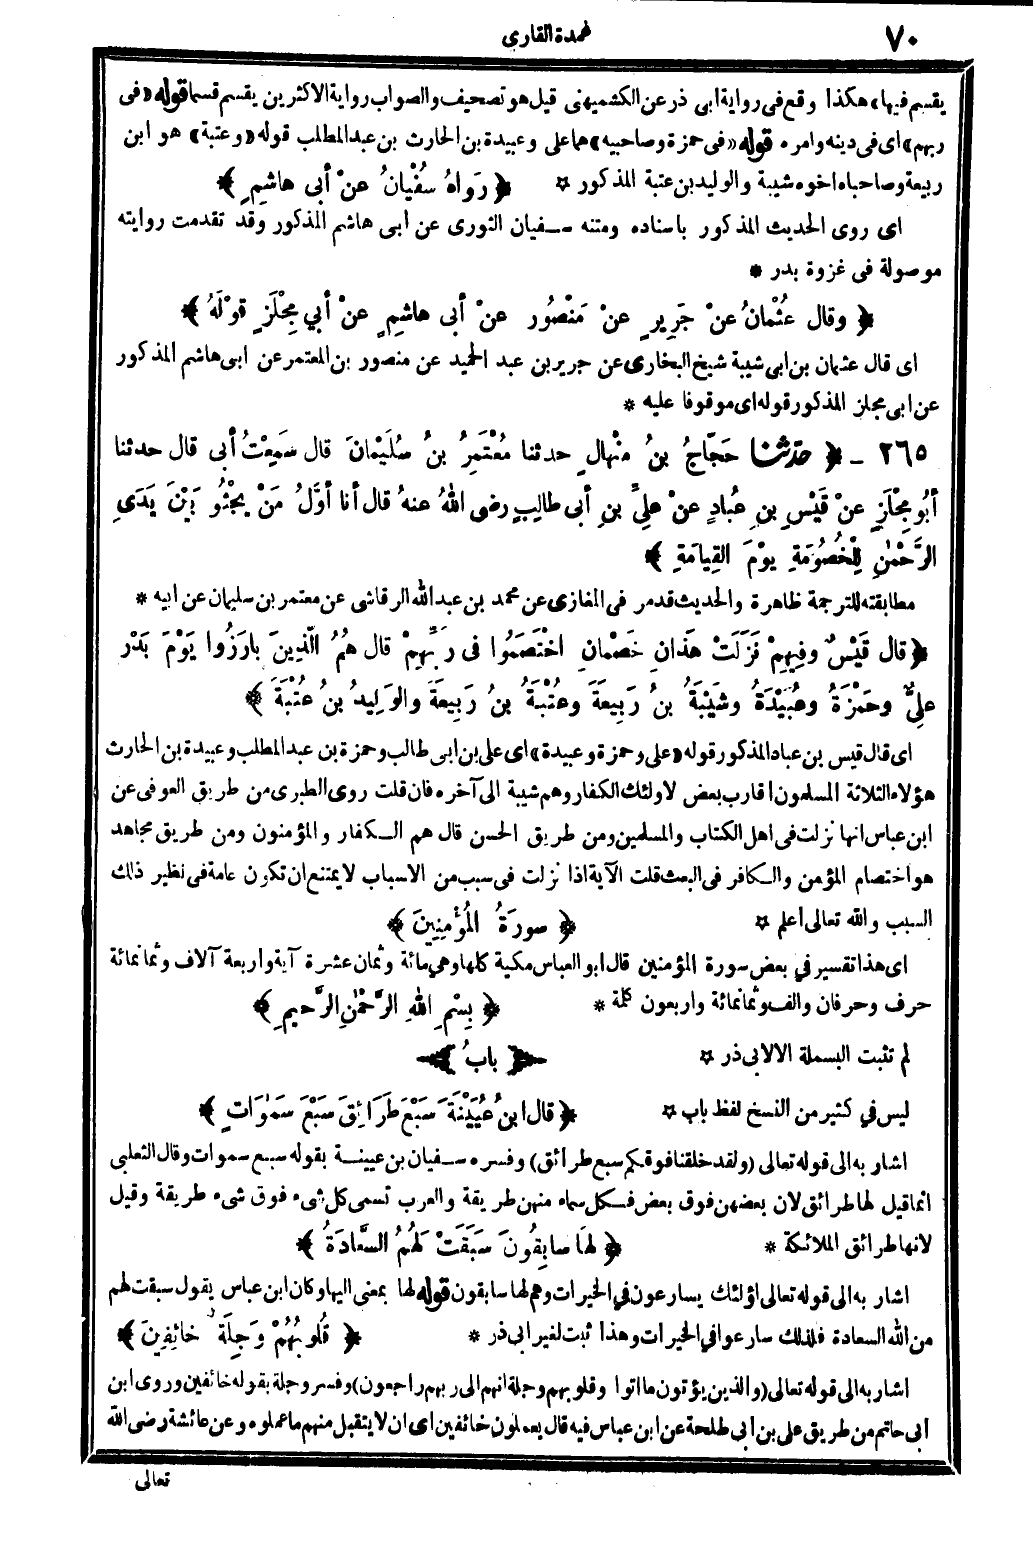 ٧٠
عمدة القارى
يقسم فيها» هكذا وقع فى رواية ابى ذر عن الكشميهنى قيل هو تصحيف والصواب رواية الاكثرين يقسم قسما قوله «فى
ربهم» اى فى دينه وامره قوله «فى حمزة وصاحبيه» هما على وعبيدة بن الحارث بن عبد المطلب قوله «وعتبة» هو ابن
ربيعة وصاحباه اخوه شيبة والوليد بن عتبة المذكور ✡ ﴿ رَوَاهُ سُفْيَانُ عَنْ أَبى هاشِمٍ ﴾
اى روى الحديث المذكور باسناده ومتنه سفيان الثورى عن أبى هاشم المذكور وقد تقدمت روايته
موصولة فى غزوة بدر *
﴿ وقال عُثْمَانُ عنْ جَرِيرٍ عنْ مَنْصُور عنْ أبى هاشِمٍ عنْ أبي مِجْلَزٍ قوْلَهُ ﴾
اى قال عثمان بن ابى شيبة شيخ البخارى عن جرير بن عبد الحميد عن منصور بن المعتمر عن ابى هاشم المذكور
عن ابى مجلز المذكور قوله اى موقوفا عليه *
٢٦٥ ـ ﴿ حدّثنا حَجّاجُ بنُ مِنْهالٍ حدثنا مُعْتَمِرُ بنُ سُلَيْمَانَ قال سَمِعْتُ أبى قال حدثنا
أبُو مِجْلَزٍ عنْ قَيْسِ بنِ عُبادٍ عنْ علِيِّ بنِ أبى طالِبٍ رضى اللهُ عنهُ قال أنا أوَّلُ مَنْ يَجْثُو بَيْنَ يَدَىِ
الرَّحْمٰنِ لِلْخُصُومَةِ يوْمَ القِيامَةِ ﴾
مطابقته للترجمة ظاهرة والحديث قد مر فى المغازى عن محمد بن عبد الله الرقاشى عن معتمر بن سليمان عن ابيه *
﴿ قال قَيْسٌ وفِيهِمْ نَزَلَتْ هَذانِ خَصْمانِ اخْتَصَمُوا فى رَبِّهِمْ قال هُمُ الَّذِينَ بارَزُوا يَوْمَ بَدْرٍ
علِيٌّ وحَمْزَةُ وعُبَيْدَةُ وشَيْبَةُ بنُ رَبِيعَةَ وعُتْبَةُ بنُ رَبِيعَةَ والوَلِيدُ بنُ عُتْبَةَ ﴾
اى قال قيس بن عباد المذكور قوله «على وحمزة وعبيدة» اى على بن ابى طالب وحمزة بن عبد المطلب وعبيدة بن الحارث
هؤلاء الثلاثة المسلمون اقارب بعض لاولئك الكفار وهم شيبة الى آخره فان قلت روى الطبرى من طريق العوفى عن
ابن عباس انها نزلت فى اهل الكتاب والمسلمين ومن طريق الحسن قال هم الكفار والمؤمنون ومن طريق مجاهد
هو اختصام المؤمن والكافر فى البعث قلت الآية اذا نزلت فى سبب من الاسباب لا يمتنع ان تكون عامة فى نظير ذلك
السبب والله تعالى أعلم ✡ ﴿ سورَةُ المُؤْمِنِينَ ﴾
اى هذا تفسير في بعض سورة المؤمنين قال ابو العباس مكية كلها وهي مائة وثمان عشرة آية واربعة آلاف وثمانمائة
حرف وحرفان والف وثمانمائة واربعون كلمة * ﴿ بِسْمِ اللهِ الرَّحْمٰنِ الرَّحِيمِ ﴾
لم تثبت البسملة الا لابى ذر ✡ ﴿ بابُ ﴾
ليس في كثير من النسخ لفظ باب ✡ ﴿ قال ابنُ عُيَيْنَةَ سَبْعَ طَرَائِقَ سَبْعَ سَمٰوَاتٍ ﴾
اشار به الى قوله تعالى (ولقد خلقنا فوقكم سبع طرائق) وفسره سفيان بن عيينة بقوله سبع سموات وقال الثعلبى
انما قيل لها طرائق لان بعضهن فوق بعض فكل سماء منهن طريقة والعرب تسمى كل شىء فوق شىء طريقة وقيل
لانها طرائق الملائكة * ﴿ لَها سابِقُونَ سَبَقَتْ لَهُمُ السَّعادَةُ ﴾
اشار به الى قوله تعالى اولئك يسارعون في الخيرات وهم لها سابقون قوله لها بمعنى اليها وكان ابن عباس يقول سبقت لهم
من الله السعادة فلذلك سارعوا في الخيرات وهذا ثبت لغير ابى ذر * ﴿ قُلوبُهُمْ وَجِلَةٌ خائِفِينَ ﴾
اشار به الى قوله تعالى (والذين يؤتون ما اتوا وقلوبهم وجلة انهم الى ربهم راجعون) وفسر وجلة بقوله خائفين وروى ابن
أبى حاتم من طريق على بن ابى طلحة عن ابن عباس فيه قال يعملون خائفين اى ان لا يتقبل منهم ما عملوه وعن عائشة رضى الله
تعالى